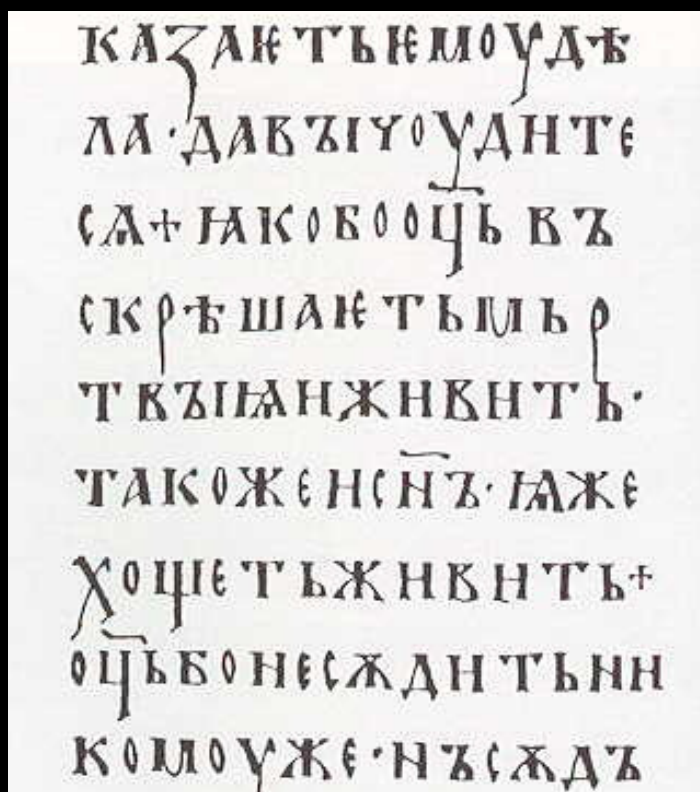 КАЗАѤТЬѤМОУДѢ
ЛА·ДАВЪІЧОУДИТЕ
СѦ+ꙖКОБООЦ҃ЬВЪ
СКРѢШАѤТЬМЬР
ТВЪІѨИЖИВИТЬ·
ТАКОЖЕИСН҃Ъ·ѨЖЕ
ХОЩЕТЬЖИВИТЬ+
ОЦ҃ЬБОНЕСѪДИТЬНИ
КОМОУЖЕ·НЪСѪДЪ